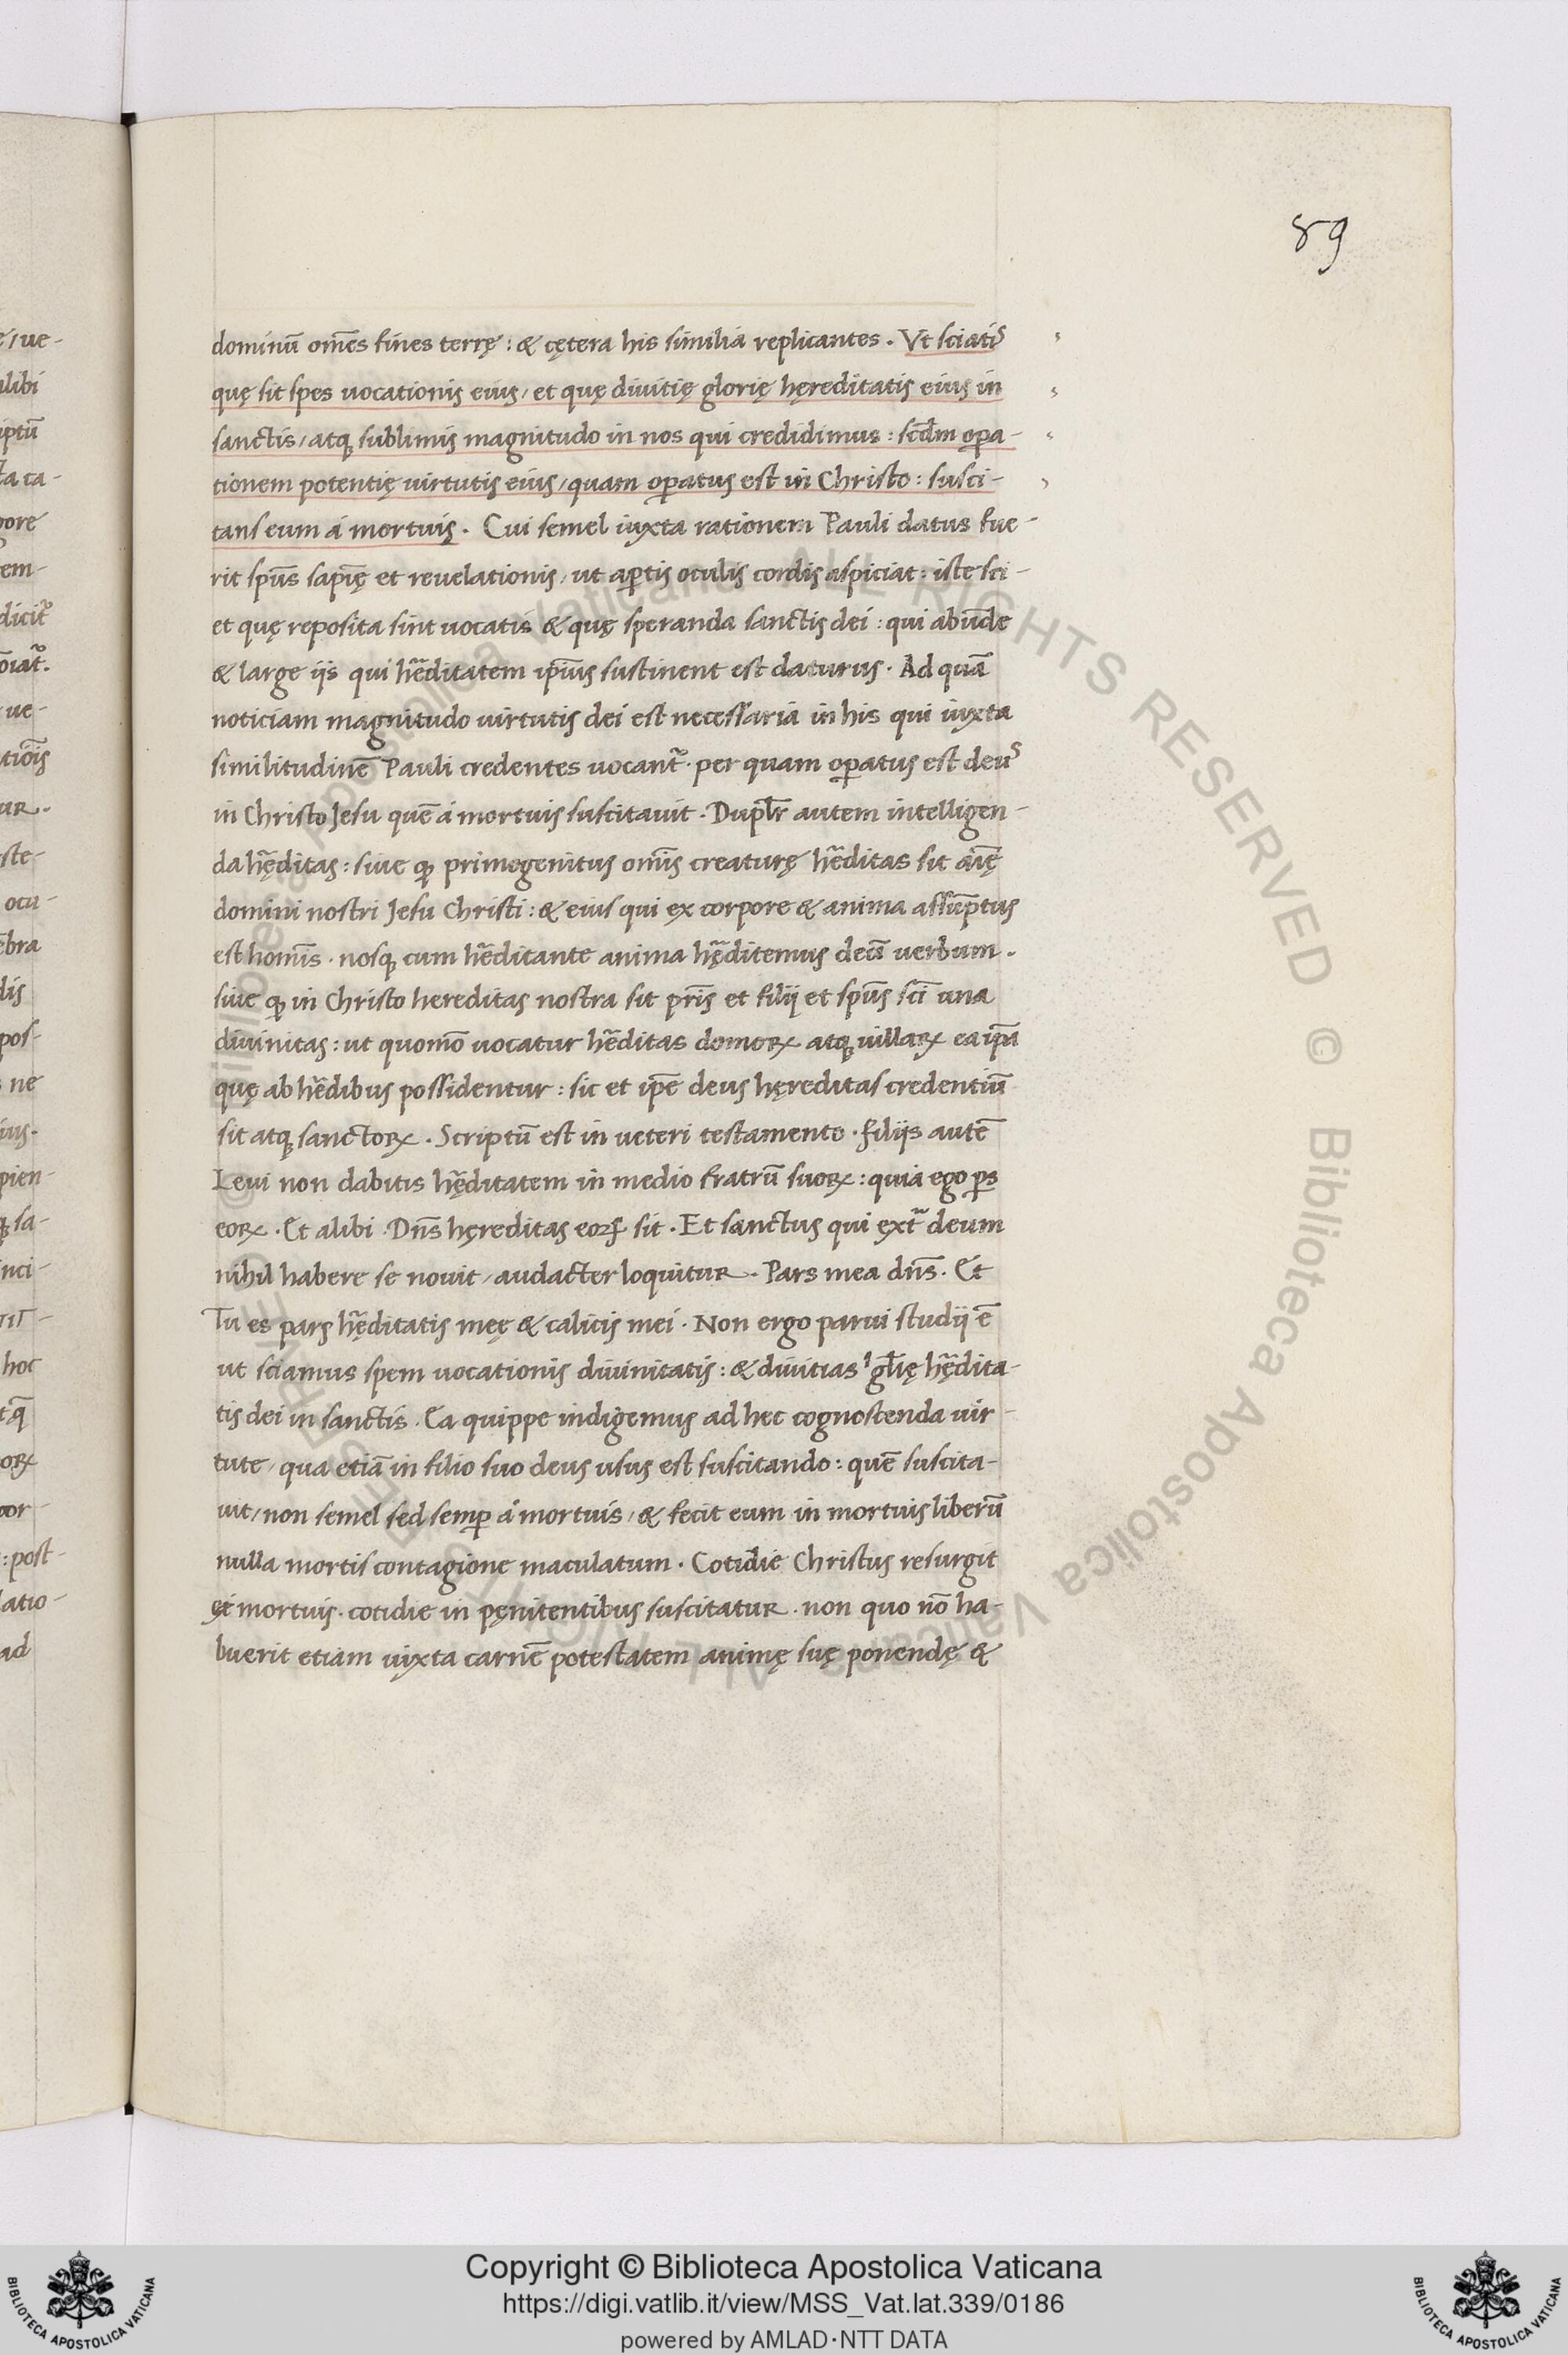 89
dominū om̄es fines terrę : & cętera his similia replicantes . Vt sciatis
quę sit spes uocationis eius / et quę diuitię glorię hęreditatis eius in
sanctis / atq; sublimis magnitudo in nos qui credidimus : scd̄m opa-
tionem potentię uirtutis eius / quam opatus est in Christo : susci-
tans eum á mortuis . Cui semel iuxta rationem Pauli datus fue-
rit spūs sapīę et reuelationis / ut aptis oculis cordis aspiciat : iste sci-
et quę reposita sint uocatis & quę speranda sanctis dei : qui abūde
& large ijs qui hēditatem ip̄ius sustinent est daturus . Ad quā
noticiam magnitudo uirtutis dei est necessaria in his qui iuxta
similitudinē Pauli credentes uocant̄ . per quam opatus est deus
in Christo Jesu quē á mortuis suscitauit . Dupl̄r autem intelligen-
da hęditas : siue q; primogenitus om̄is creaturę hēditas sit aīę
domini nostri Jesu Christi : & eius qui ex corpore & anima assūptus
est hom̄is . nosq; cum hēditante anima hęditemus deū uerbum .
siue q; in Christo hereditas nostra sit pr̄is et filij et spūs sc̄i una
diuinitas : ut quomō uocatur hēditas domoꝝ atq; uillaꝝ ea ip̄a
quę ab hēdibus possidentur : sic et ip̄e deus hęreditas credentiū
sit atq; sanctoꝝ . Scriptū est in ueteri testamento . filijs autē
Leui non dabitis hęditatem in medio fratrū suoꝝ : quia ego ps
eoꝝ . Et alibi . Dn̄s hęreditas eoꝝ sit . Et sanctus qui ext̄ deum
nihil habere se nouit / audacter loquitur . Pars mea dn̄s . Et
Tu es pars hęditatis meę & calicis mei . Non ergo parui studij ē
ut sciamus spem uocationis diuinitatis : & diuitias gl̄ię hędita-
tis dei in sanctis . Ea quippe indigemus ad hec cognoscenda uir-
tute / qua etiā in filio suo deus usus est suscitando : quē suscita-
uit / non semel sed semp á mortuis / & fecit eum in mortuis liberū
nulla mortis contagione maculatum . Cotidie Christus resurgit
mortuis . cotidie in pęnitentibus suscitatur . non quo nō ha-
buerit etiam iuxta carnē potestatem animę suę ponendę &
Copyright © Biblioteca Apostolica Vaticana
https://digi.vatlib.it/view/MSS_Vat.lat.339/0186
powered by AMLAD·NTT DATA
BIBLIOTECA APOSTOLICA VATICANA
BIBLIOTECA APOSTOLICA VATICANA